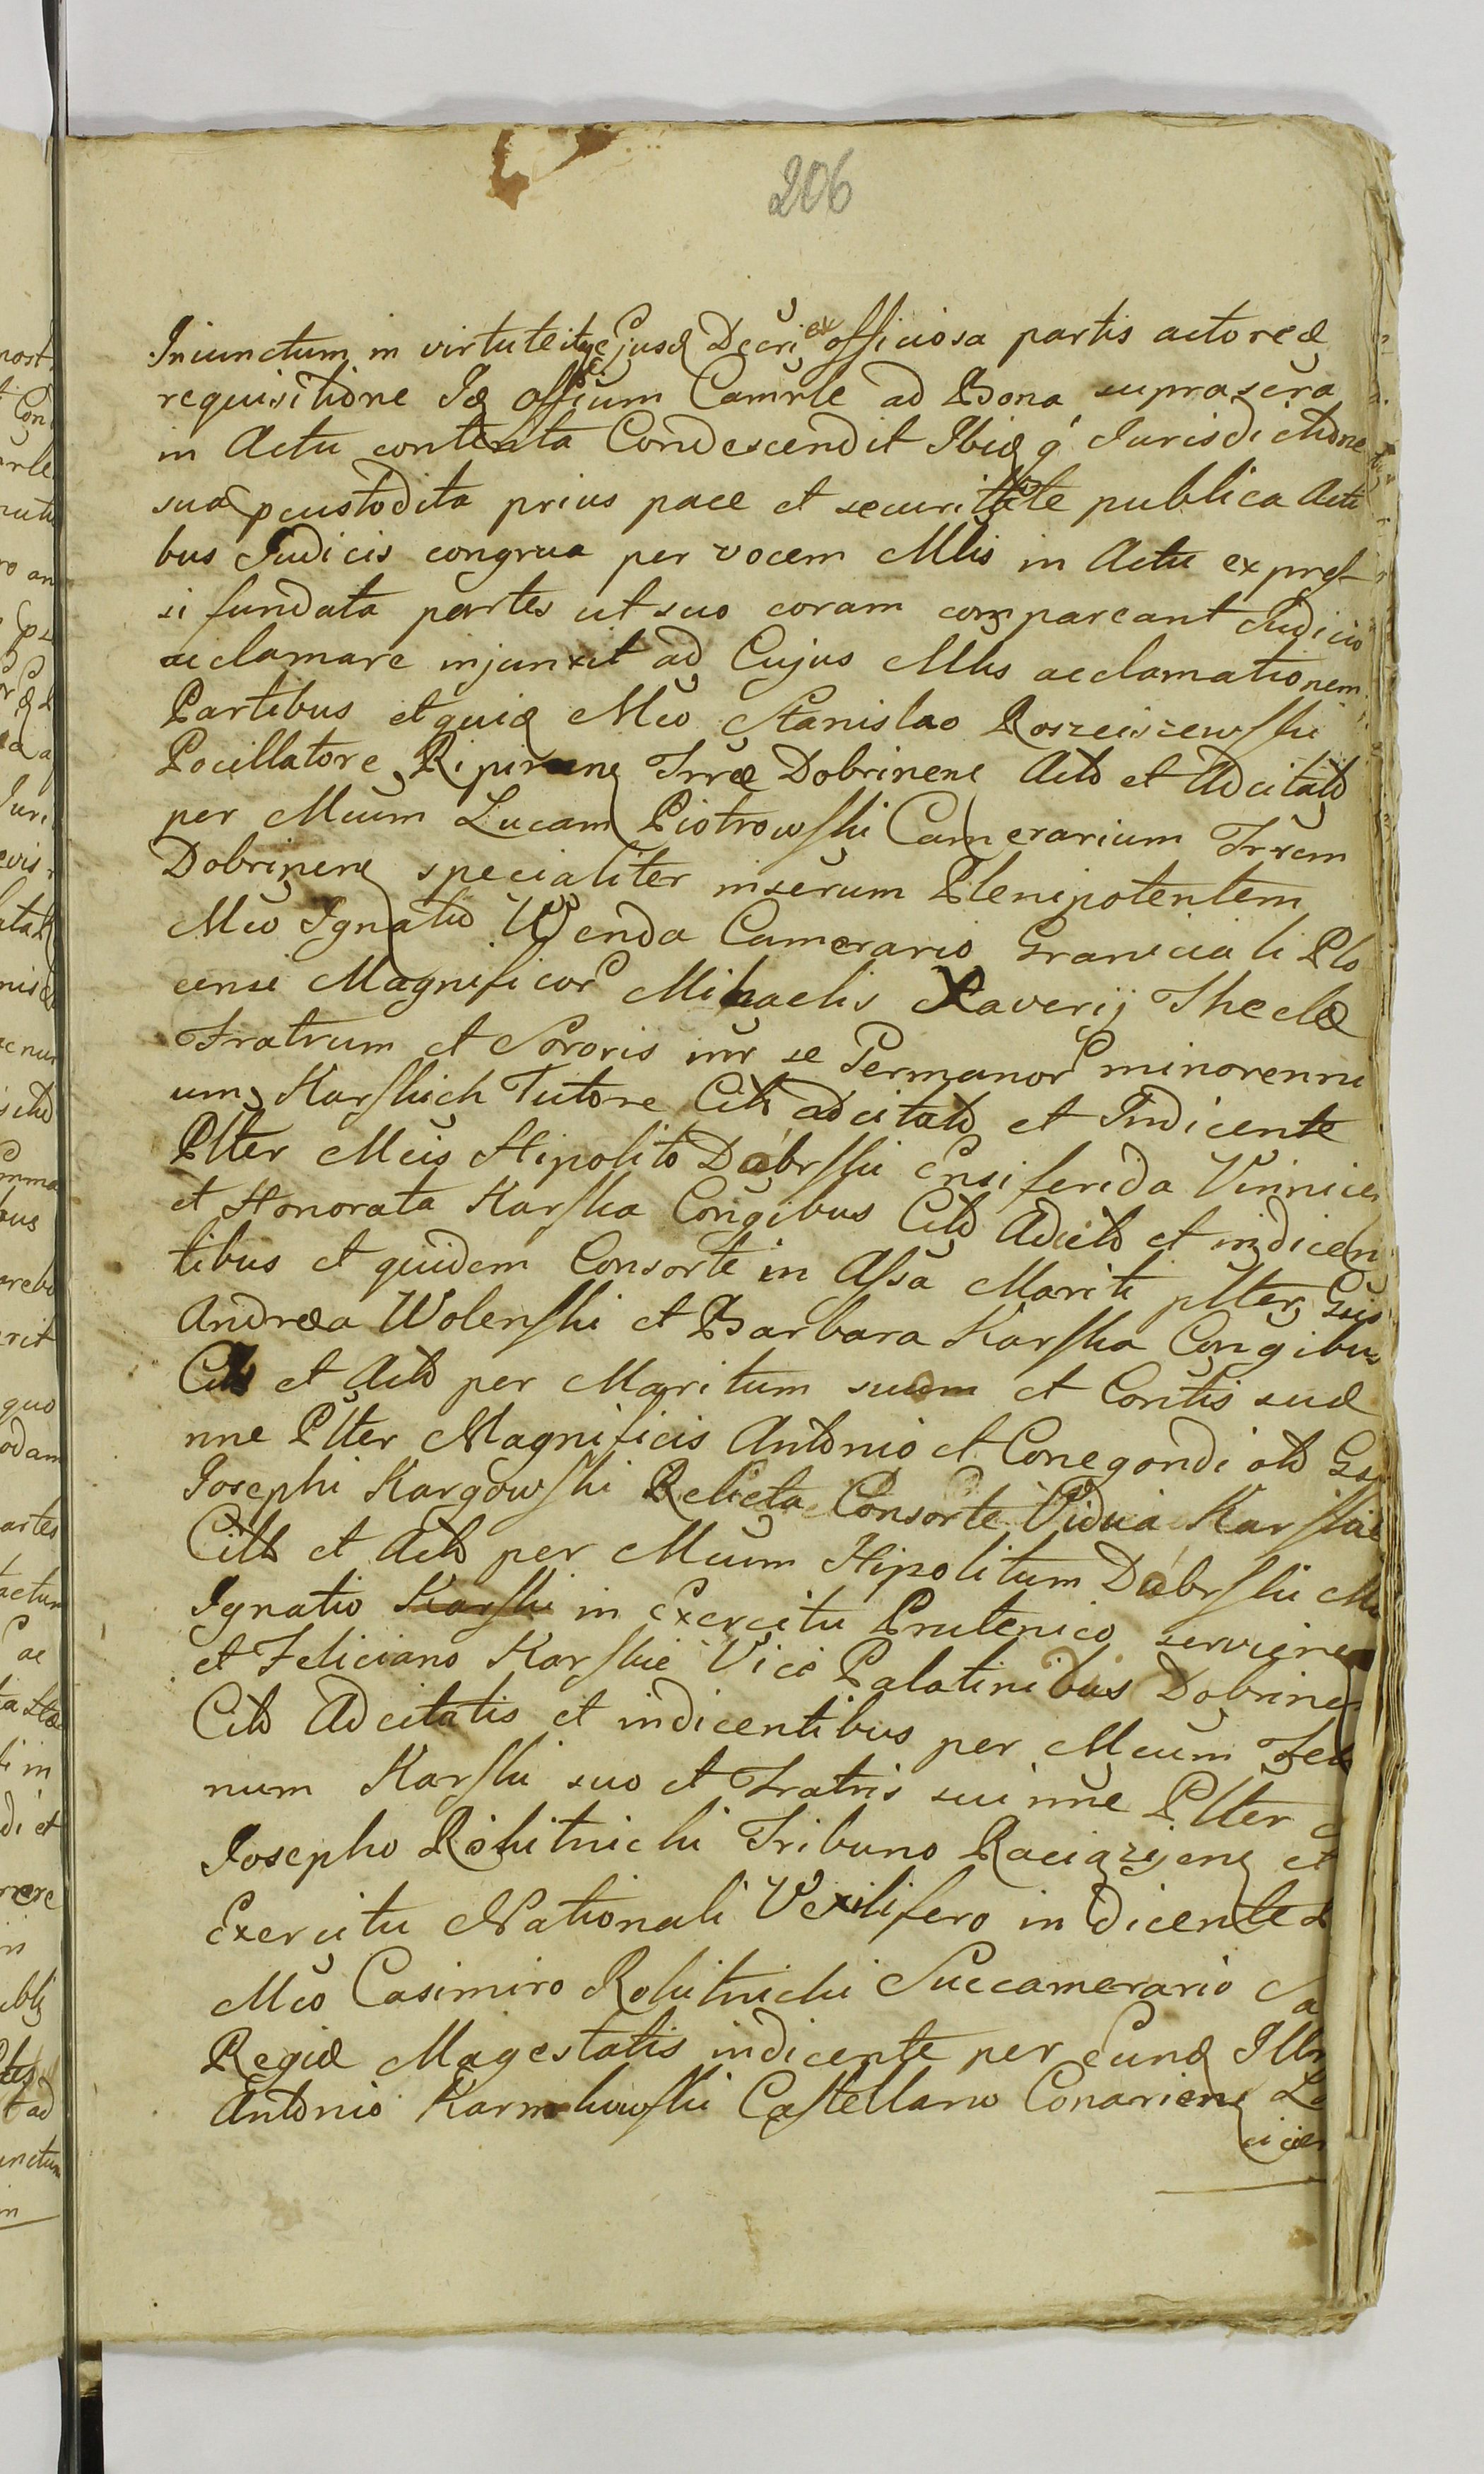 206
Iniunctum in virtute itqe Ejusd Decri ex officiosa partis actoreæ
requisitione Id Offium Camrle ad Bona suprascra
in Actu contenta Condescendit Ibiq q Jurisdictione
sua pcustodita prius pace et securitate publica Acti
bus Judicis congrua per vocem Mlis in Actu expres
si fundata partes ut suo coram compareant Judicio
acclamare injunxit ad Cujus Mlis acclamationem
Partibus et quid Mco Stanislao Roszciszewski
Pocillatore Ripinens Trræ Dobrinens Acto et Adcitato
per Mcum Lucam Piotrowski Camerarium Trrem
Dobrinens specialiter inserum Plenipotentem
Mco Ignatio Wenda Camerario Graniciali Plo
censi Magnificor Mihaelis Xaverij Theclæ
Fratrum et Sororis inr se Germanor minorenni
um Karskich Tutore Cito adcitato et Indicente
Plter Mcis Hipolito Dąbrski Ensiferida Vinnicen
et Honorata Karska Congibus Citis Adcitis et indicen
tibus et quidem Consorte in Assa Mariti plter Gsis
Andrea Wolenski et Barbara Karska Congibus
Citis et Actis per Maritum suum et Contis suæ
nne Plter Magnificis Antonio et Conegondi olo Gsi
Josephi Kargowski Relicta Consorte Vidua Karskie
Citis et Actis per Mcum Hipolitum Dąbrski Mco
Ignatio Karski in Exercitu Prutenico serviens
et Feliciano Karskie Vice Palatinibus Dobrinen
Citis Adcitatis et indicentibus per Mcum Feli
num Karski suo et Fratris sui nne Plter
Josepho Rokitnicki Tribuno Raciązijens et
Exercitu Nationali Vexilifero indicente
Mco Casimiro Rokitnicki Succamerario Sa
Regiæ Magestatis indicente per Eund Illr
Antonio Karnkowski Castellano Conariens
cicien